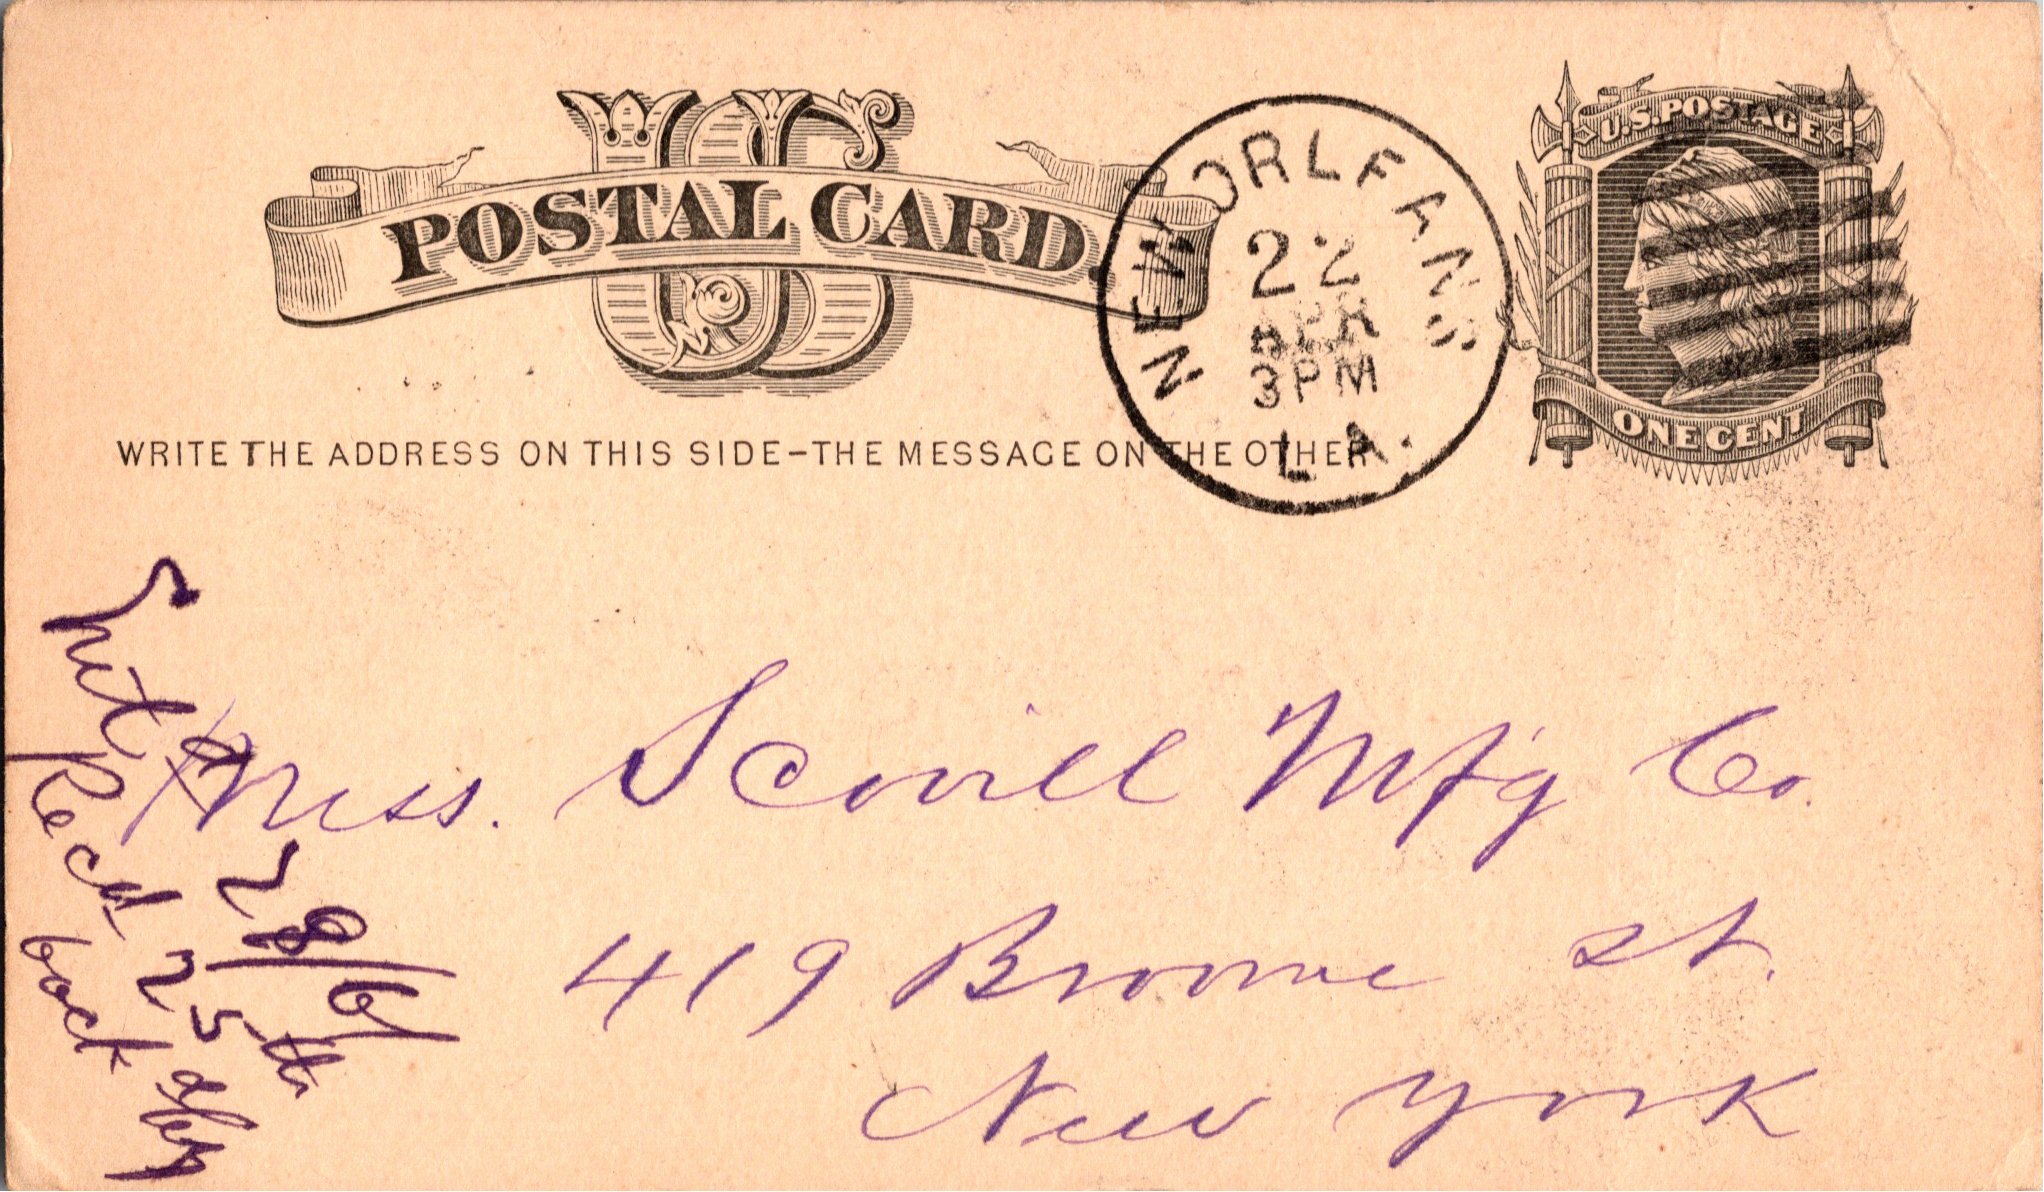 US
POSTAL CARD.
WRITE THE ADDRESS ON THIS SIDE - THE MESSAGE ON THE OTHER
NEW ORLEANS
22
APR
3 PM
LA.
U.S. POSTAGE
ONE CENT
Mess. Scovill Mfg Co.
419 Broome St.
New York
28/6
Recd 25th
back